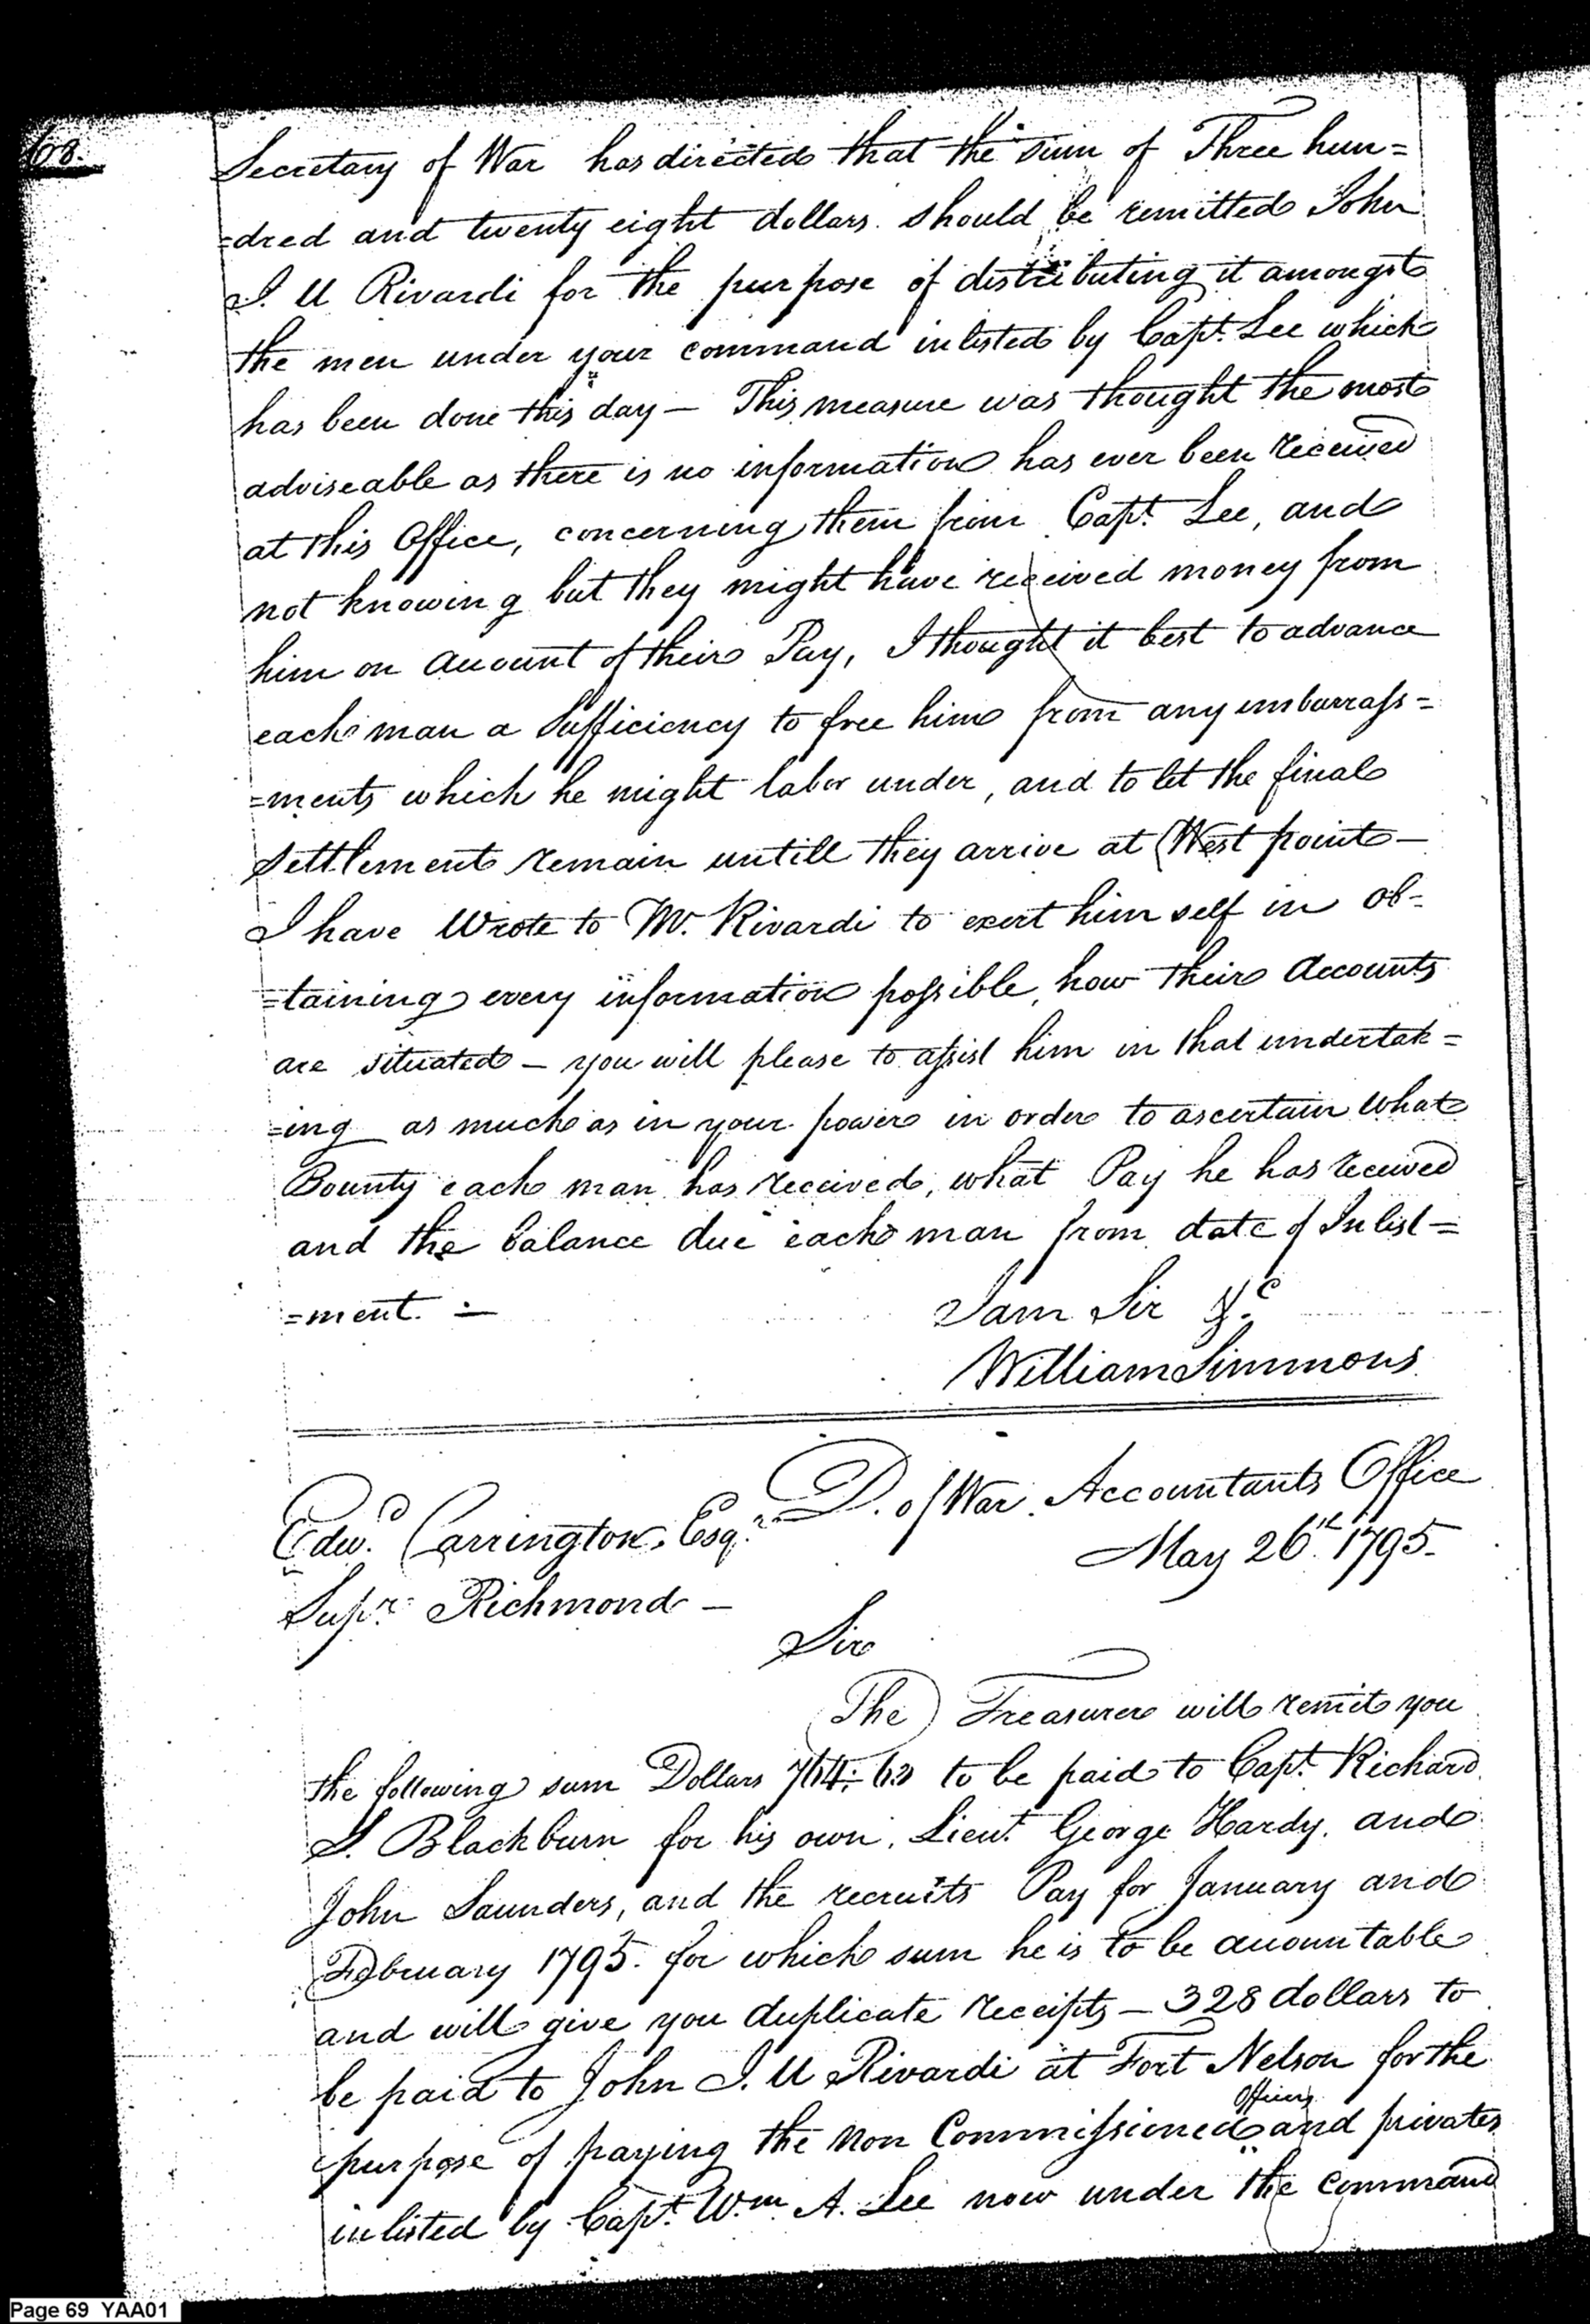 68.
Secretary of War has directed that the sum of Three hun=
=dred and twenty eight dollars should be remitted John
I. U Rivardi for the purpose of distributing it amongst
the men under your command inlisted by Capt. Lee which
has been done this day — This measure was thought the most
adviseable as there is no information has ever been received
at this Office, concerning them from Capt. Lee, and
not knowing but they might have received money from
him on account of their Pay, I thought it best to advance
each man a sufficiency to free him from any embarrass=
=ments which he might labor under, and to let the final
settlement remain untill they arrive at West point —
I have wrote to Mr. Rivardi to exert him self in ob-
=taining every information possible, how their Accounts
are situated — you will please to assist him in that undertak=
=ing as much as in your power in order to ascertain what
Bounty each man has received, what Pay he has received
and the balance due each man from date of Inlist=
=ment. —
I am Sir &c
William Simmons
D. of War Accountants Office
May 26th 1795.
Edwd. Carrington, Esqr.
Supr. Richmond —
Sir
The Treasurer will remit you
the following sum Dollars to be paid to Capt. Richard
S. Blackburn for his own, Lieut. George Hardy, and
John Saunders, and the recruits Pay for January and
February 1795. for which sum he is to be accountable
and will give you duplicate receipts — 328 dollars to
be paid to John I. U Rivardi at Fort Nelson for the
purpose of paying the non Commissioned officers and privates
inlisted by Capt. Wm. A. Lee now under the command
Page 69 YAA01